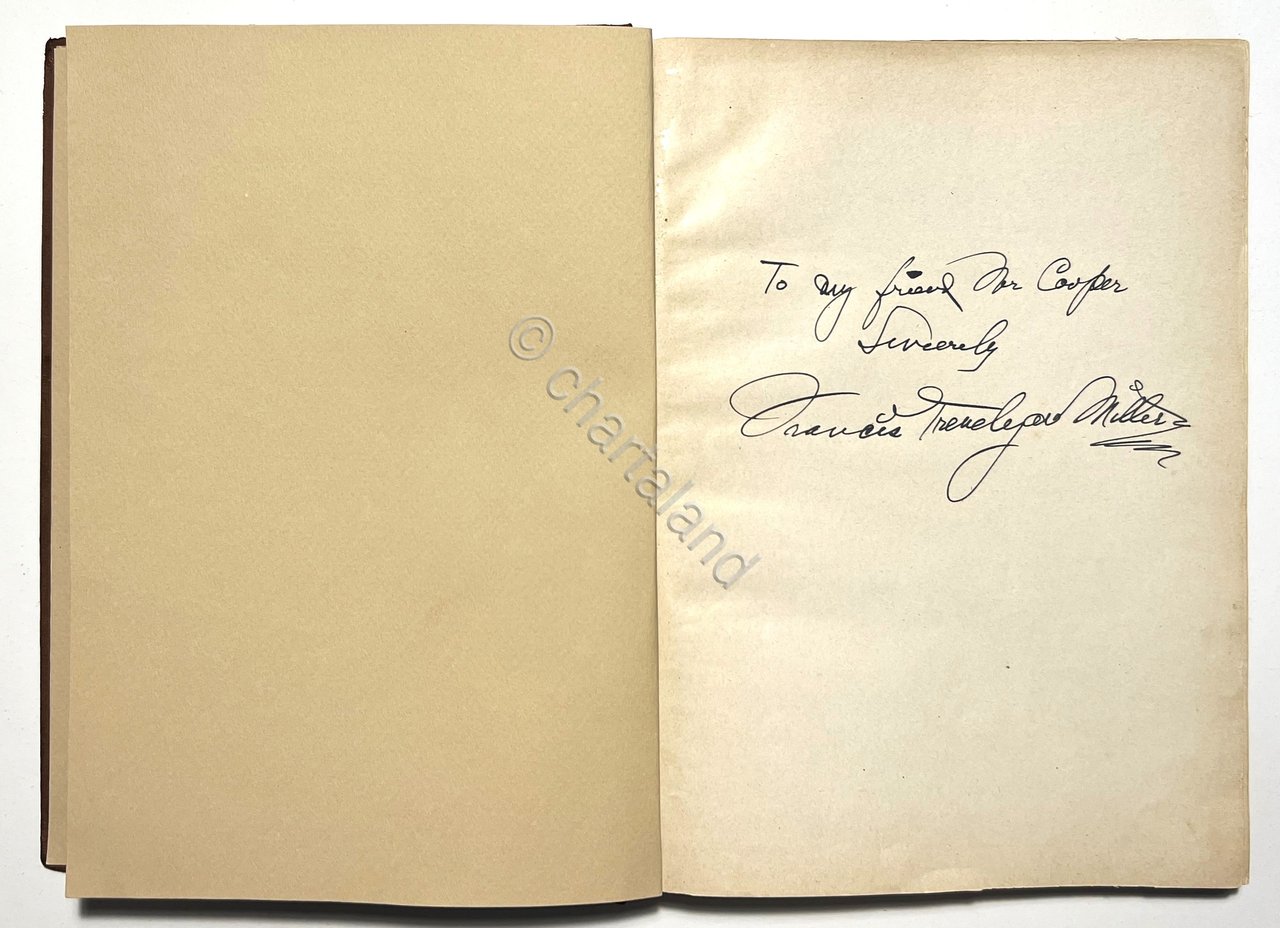 To my friend Mr Cooper
Sincerely
Francis Trevelyan Miller
© chartaland